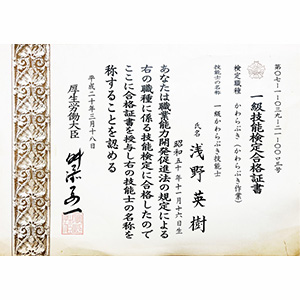 第〇七一一〇三九一二一一〇〇〇三号
一級技能検定合格証書
検定職種 かわらぶき（かわらぶき作業）
技能士の名称 一級かわらぶき技能士
氏名 浅野英樹
昭和五十年十一月十六日生
あなたは職業能力開発促進法の規定による
右の職種に係る技能検定に合格したので
ここに合格証書を授与し右の技能士の名称を
称することを認める
平成二十年三月十八日
厚生労働大臣